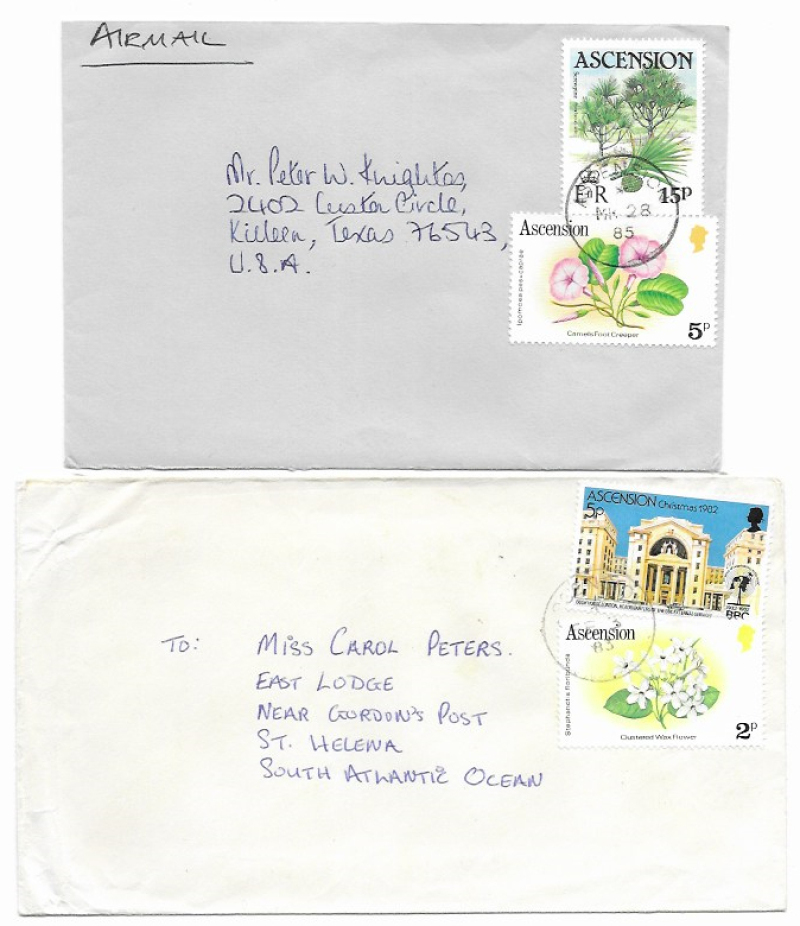 AIRMAIL
ASCENSION
E R 15p
MR 28
85
Mr. Peter W. Knightes,
2402 Custer Circle,
Killeen, Texas 76543,
U.S.A.
Ascension
Ipomoea pes-caprae
Camels Foot Creeper
5p
ASCENSION Christmas 1982
5p
BBC
83
Ascension
Stephanotis floribunda
Clustered Wax Flower
2p
TO: MISS CAROL PETERS.
EAST LODGE
NEAR GORDON'S POST
ST. HELENA
SOUTH ATLANTIC OCEAN